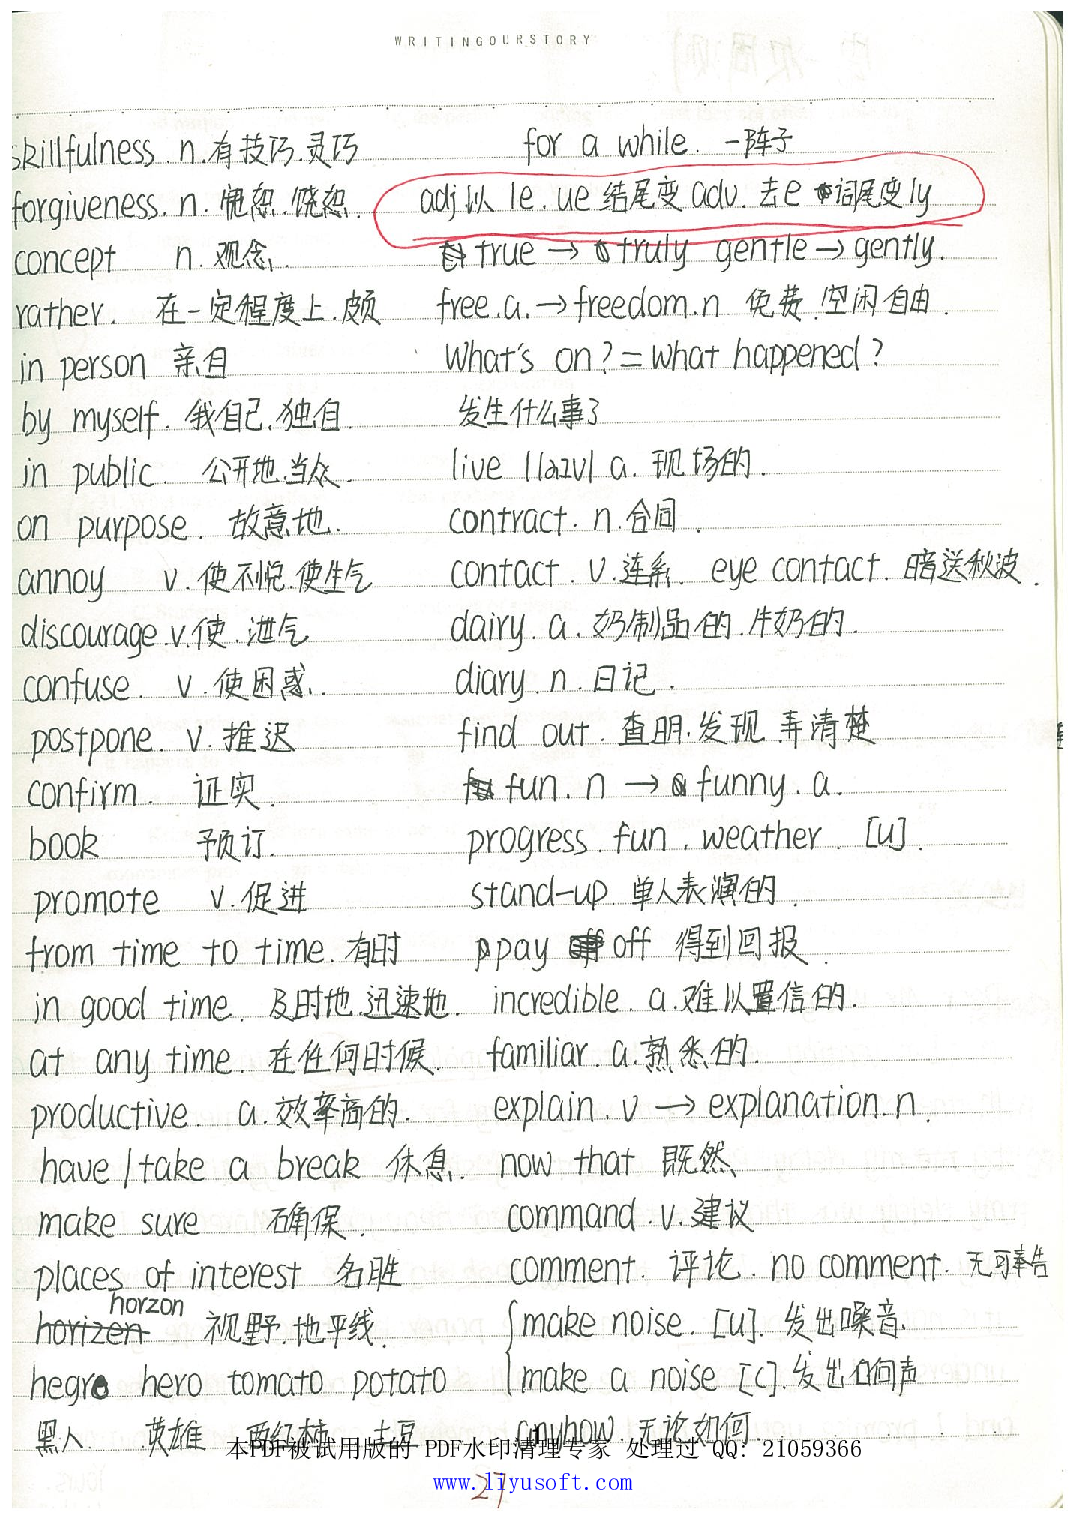 WRITINGOURSTORY
skillfulness. n. 有技巧.灵巧
forgiveness. n. 宽恕.饶恕.
concept n. 观念.
rather. 在一定程度上.颇
in person 亲自
by myself. 我自己.独自.
in public. 公开地.当众.
on purpose. 故意地.
annoy v. 使不悦.使生气
discourage v. 使.泄气
confuse. v. 使困惑.
postpone. v. 推迟
confirm. 证实.
book 预订.
promote v. 促进
from time to time. 有时
in good time. 及时地.迅速地.
at any time. 在任何时候.
productive. a. 效率高的.
have / take a break 休息.
make sure 确保.
places of interest 名胜
horzon
horizen 视野.地平线.
hegro hero tomato potato
黑人 英雄 西红柿 土豆
for a while. 一阵子
adj以 le. ue 结尾变 adv. 去e 词尾变 ly
true → truly gentle → gently.
free. a. → freedom. n 免费.空闲 自由.
What's on? = what happened?
发生什么事了
live |laɪv| a. 现场的.
contract. n. 合同.
contact. v. 连系. eye contact. 暗送秋波.
dairy. a. 奶制品的.牛奶的.
diary. n. 日记.
find out. 查明.发现 弄清楚
fun. n → funny. a.
progress. fun. weather. [U].
stand-up 单人表演的.
pay off 得到回报.
incredible. a. 难以置信的.
familiar. a. 熟悉的.
explain. v → explanation. n.
now that 既然.
command. v. 建议
comment. 评论. no comment. 无可奉告
make noise. [U]. 发出噪音.
make a noise [C]. 发出响声
anyhow. 无论如何.
本PDF被试用版的 PDF水印清理专家 处理过 QQ: 21059366
www.liyusoft.com
27